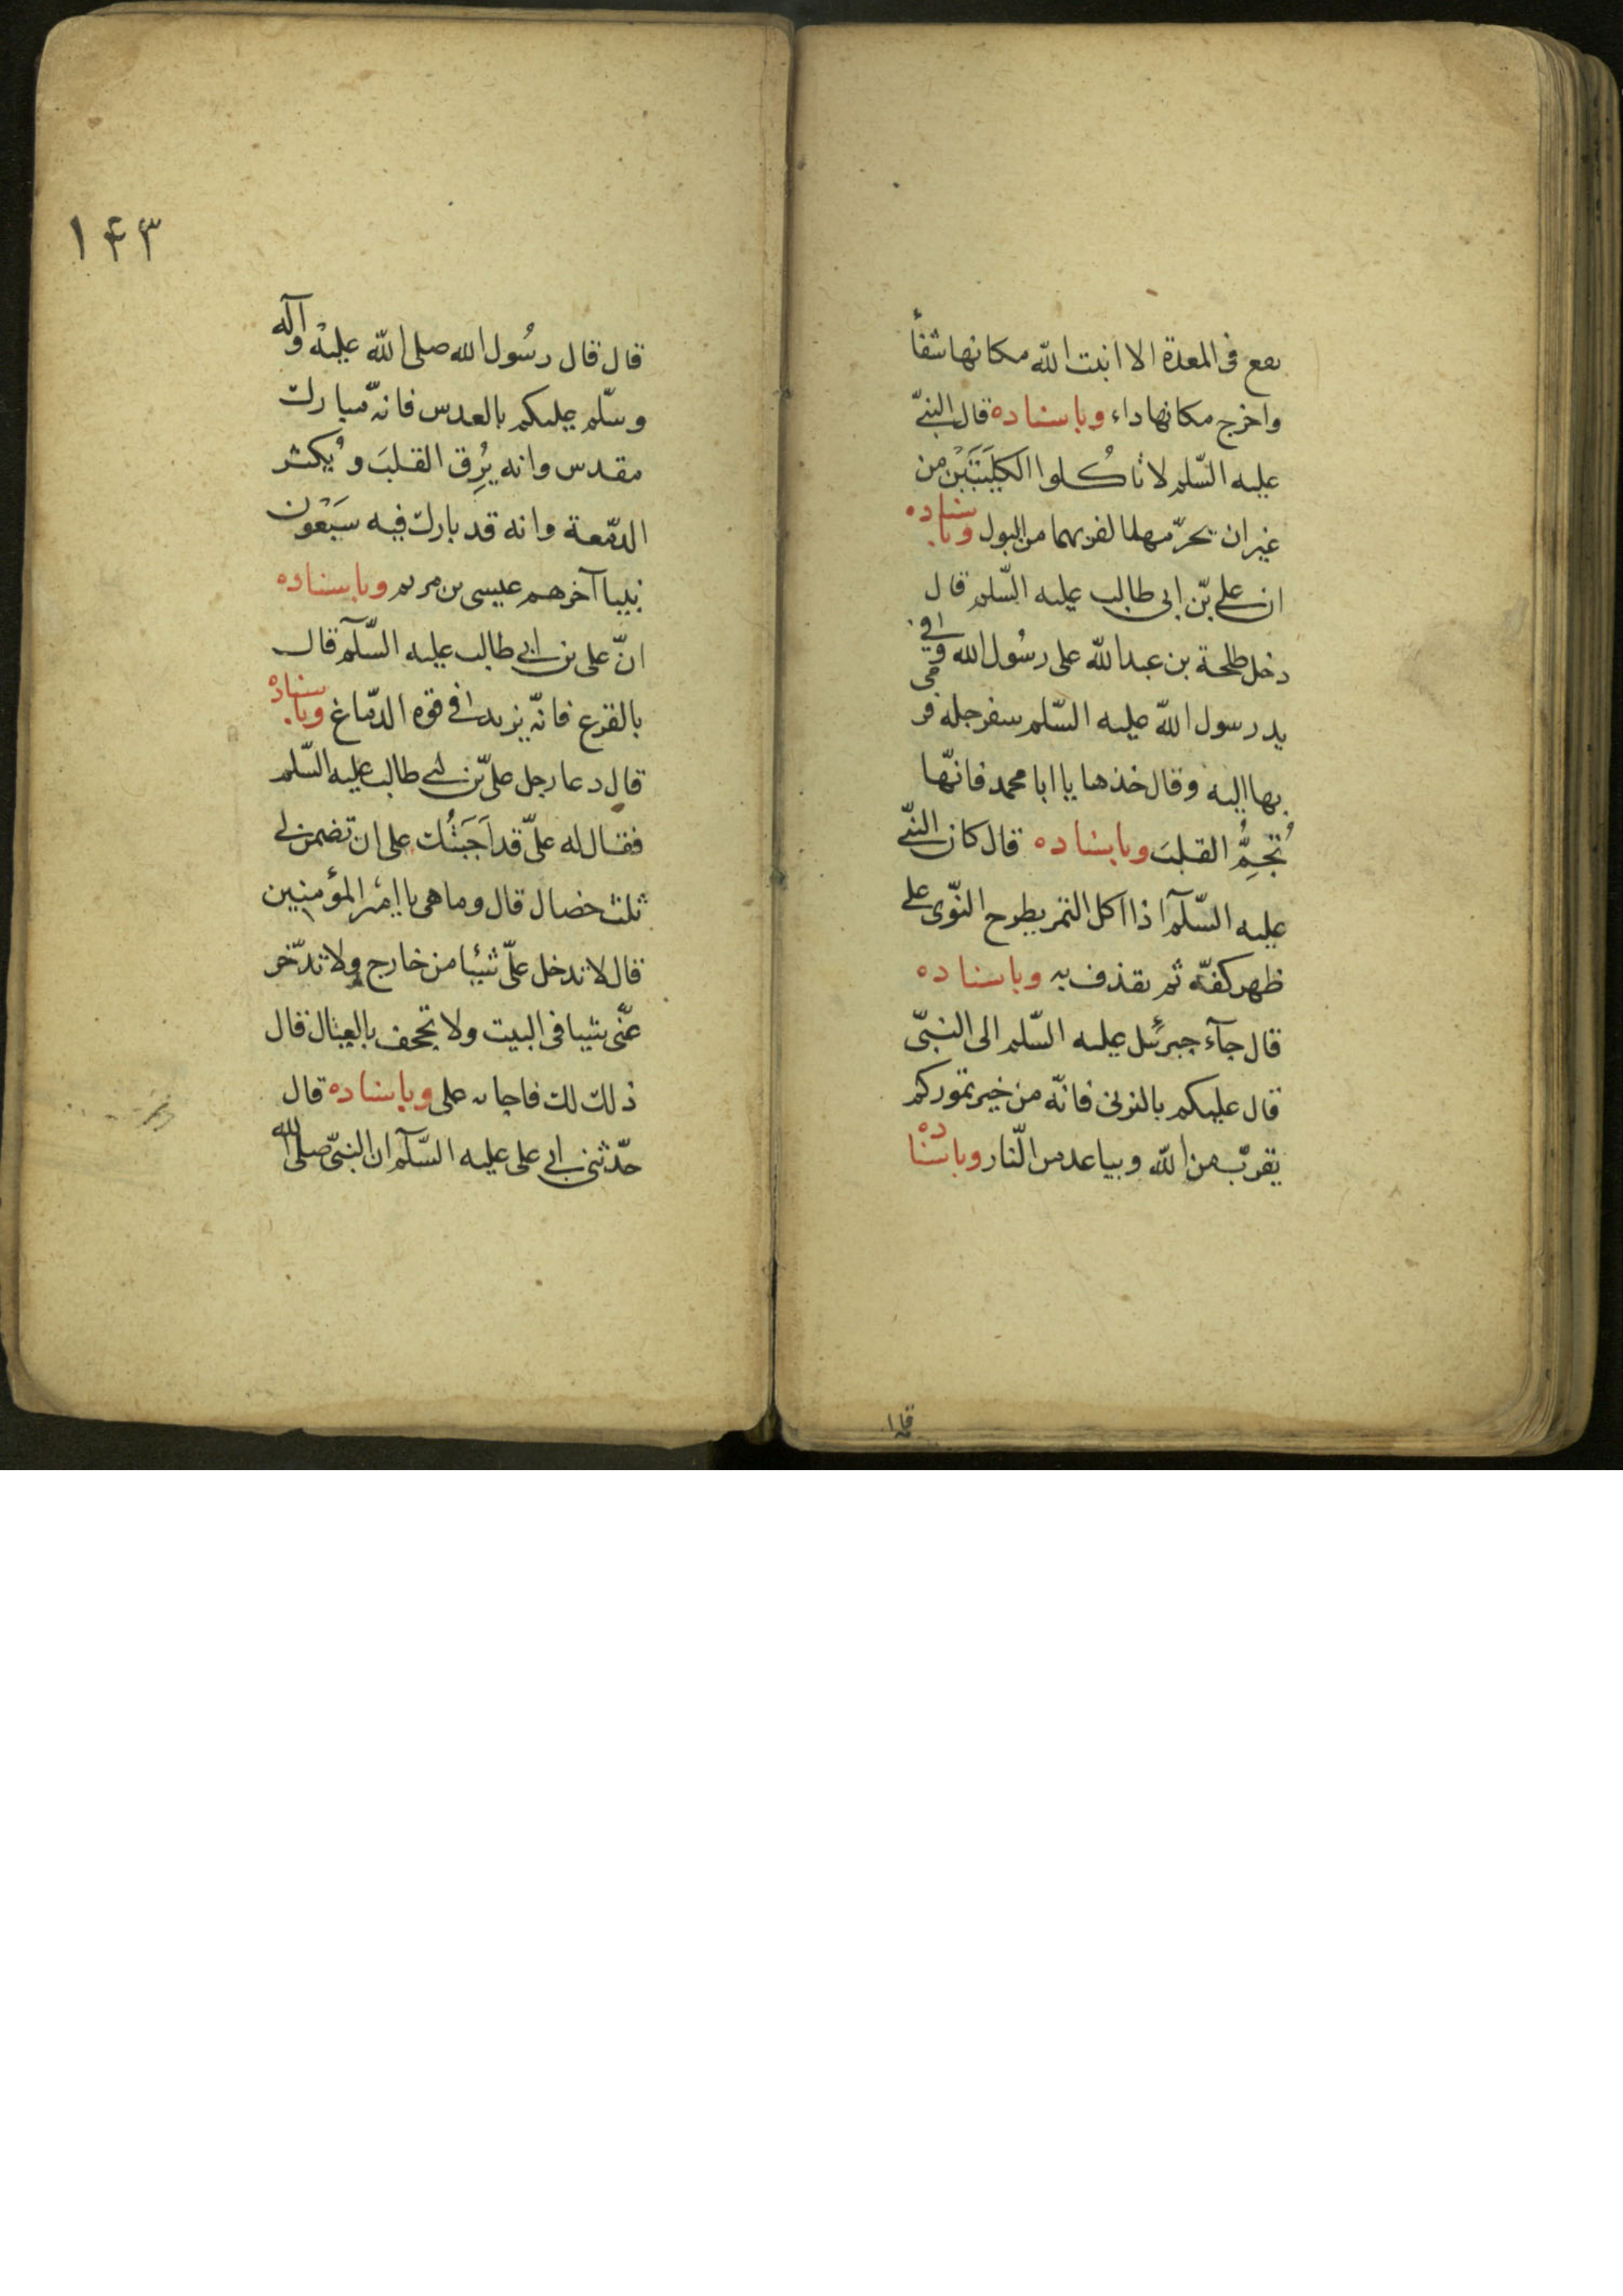 يقع فى المعدة الا انبت الله مكانها شفأ
واخرج مكانها داء وباسناده قال النبىّ
عليه السّلم لا تاكُلوا الكليَتَيْن من
غير ان يحرّمهما لقربهما من البول وباسناده
ان على بن ابى طالب عليه السّلم قال
دخل طلحة بن عبد الله على رسُول الله وفى
يد رسول الله عليه السّلم سفرجله قد رمى
بها اليه وقال خذها يا ابا محمد فانّها
تُجِمُّ القلبَ وباسناده قال كان النبىّ
عليه السّلآم اذا اكل التمر يطرح النّوى على
ظهر كفّه ثم يقذف به وباسناده
قال جآء جبرئيل عليه السّلم الى النبىّ
قال عليكم بالبرنى فانّه من خير تموركم
يقرّب من الله ويباعد من النّار وباسناده
قال
١۴٣
قال قال رسُول الله صلى الله عليه وآله
وسّلم عليكم بالعدس فانه مّبارك
مقدس وانه يُرِق القلبَ ويُكثر
الدمّعة وانه قد بارك فيه سَبْعُون
نبيا آخرهم عيسى بن مريم وباسناده
انّ على بن ابى طالب عليه السّلآم قال
بالقرع فانّه يزيد فى قوه الدّماغ وباسناده
قال دعا رجل علىّ بن ابى طالب عليه السّلم
فقال له علىّ قد اَجَبْتُك على ان تضمن لى
ثلث خصال قال وما هى يا امير المؤمنين
قال لا تدخل علىّ شيئا من خارج ولا تدّخر
عنّى شيا فى البيت ولا تجحف بالعيال قال
ذلك لك فاجابه على وباسناده قال
حدّثنى ابى على عليه السّلآم ان النبىّ صلى الله